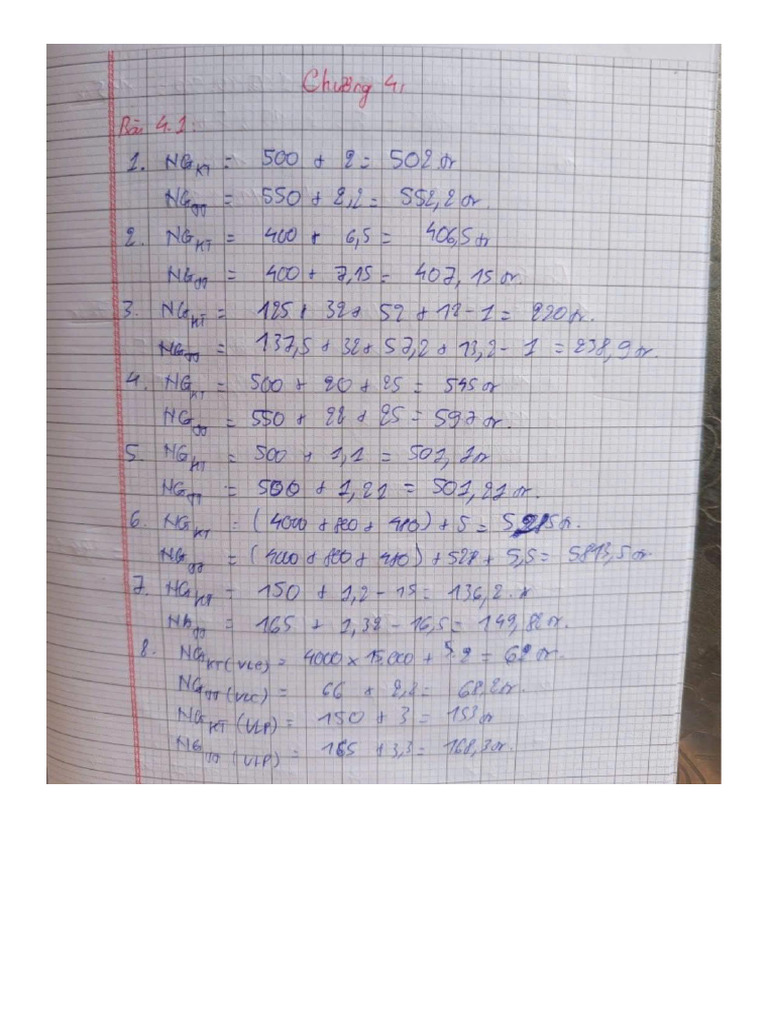 Chương 4
Bài 4.1:
1. NG KT = 500 + 2 = 502 tr
NG TT = 550 + 2,2 = 552,2 tr.
2. NG KT = 400 + 6,5 = 406,5 tr
NG TT = 400 + 7,15 = 407,15 tr.
3. NG KT = 125 + 32 + 52 + 12 - 1 = 220 tr.
NG TT = 137,5 + 32 + 57,2 + 13,2 - 1 = 238,9 tr.
4. NG KT = 500 + 20 + 25 = 545 tr
NG TT = 550 + 22 + 25 = 597 tr.
5. NG KT = 500 + 1,1 = 501,1 tr
NG TT = 500 + 1,21 = 501,21 tr.
6. NG KT = (4000 + 800 + 480) + 5 = 5285 tr.
NG TT = (4000 + 800 + 480) + 528 + 5,5 = 5813,5 tr.
7. NG KT = 150 + 1,2 - 15 = 136,2 tr
NG TT = 165 + 1,32 - 16,5 = 149,82 tr.
8. NG KT (VLC) = 4000 x 15.000 + 2 = 62 tr.
NG TT (VLC) = 66 + 2,2 = 68,2 tr.
NG KT (VLP) = 150 + 3 = 153 tr
NG TT (VLP) = 165 + 3,3 = 168,3 tr.